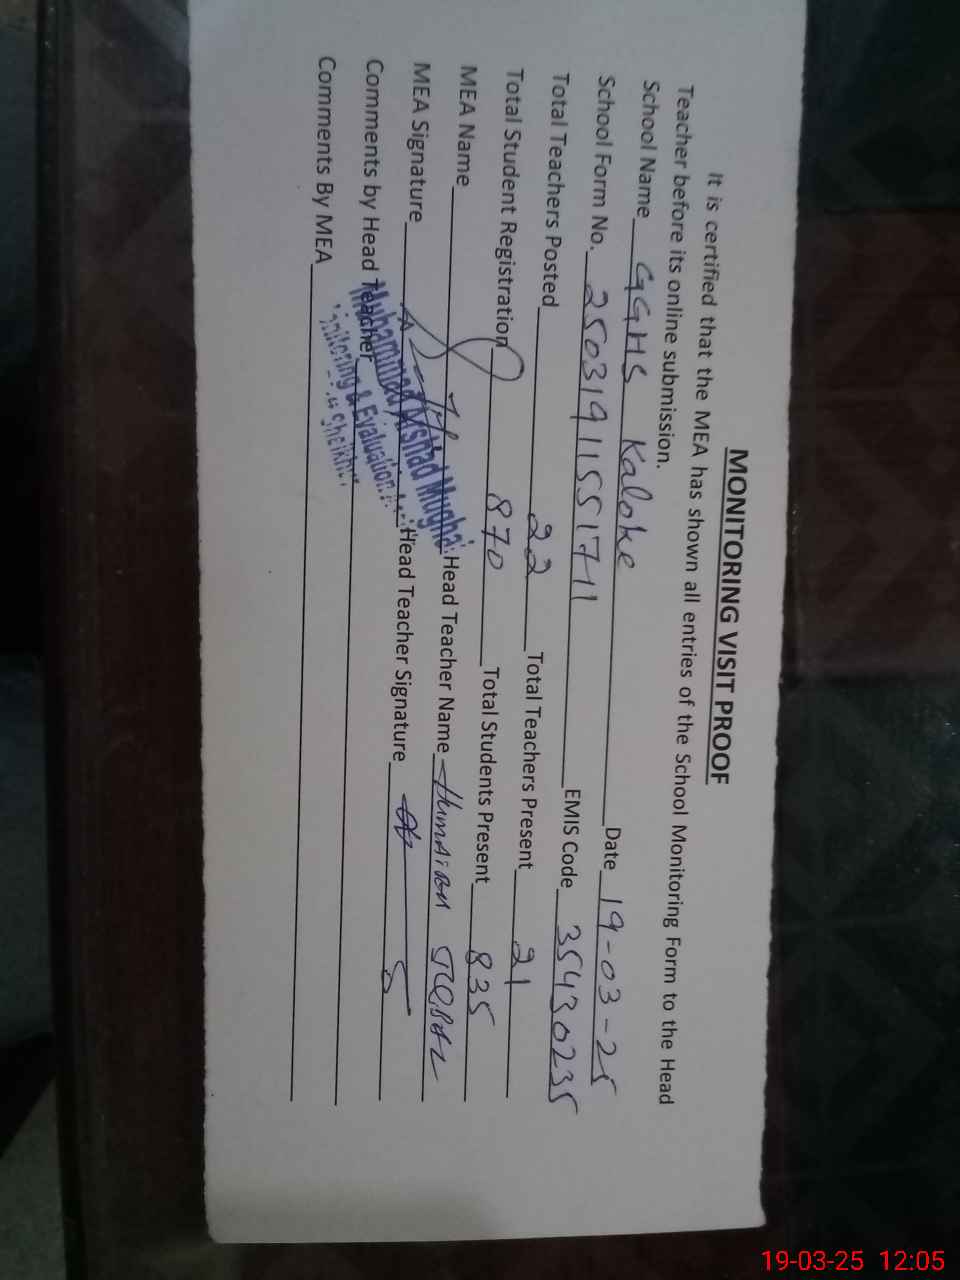 MONITORING VISIT PROOF
It is certified that the MEA has shown all entries of the School Monitoring Form to the Head
Teacher before its online submission.
School Name GGHS Kaloke Date 19-03-25
School Form No. 25031911551711 EMIS Code 35430235
Total Teachers Posted 22 Total Teachers Present 21
Total Student Registration 870 Total Students Present 835
MEA Name Head Teacher Name Humaion
MEA Signature Head Teacher Signature
Muhammad Arshad Mughal
Monitoring & Evaluation
Comments by Head Teacher
Comments By MEA
19-03-25 12:05